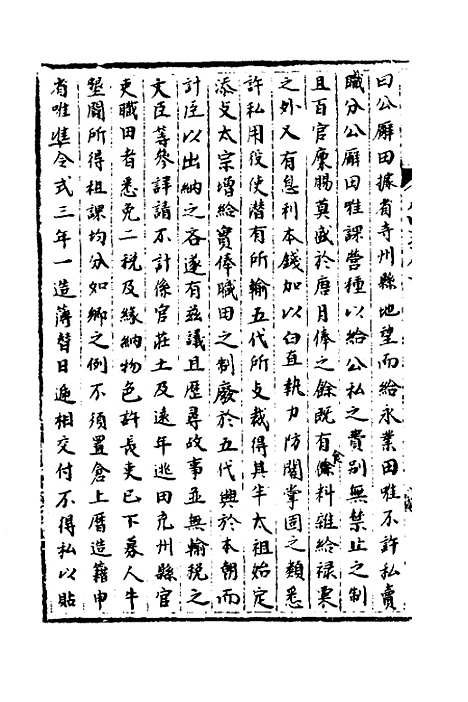 曰公廨田據省寺州縣地望而給永業田唯不許私賣
職分公廨田唯課營種以給公私之費別無禁止之制
且百官廩賜莫盛於唐月俸之餘既有食料雜給祿粟
之外又有息利本錢加以白直執刀防閤掌固之類悉
許私用役使潛有所輸五代所支裁得其半太祖始定
添支太宗增給實俸職田之制廢於五代興於本朝而
計臣以出納之吝遂有兹議且歷尋故事並無輸稅之
文臣等參詳請不計係官莊土及遠年逃田充州縣官
吏職田者悉免二稅及緣納物色許長吏已下募人牛
墾闢所得租課均分如鄉之例不須置倉上曆造籍申
省唯準令式三年一造簿替日遞相交付不得私以貼